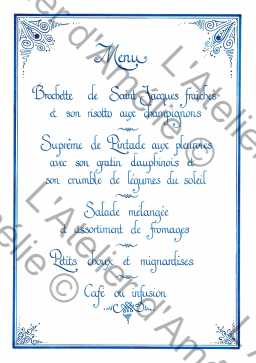 Menu
Brochette de Saint Jacques fraîches
et son risotto aux champignons
Suprême de Pintade aux pleurotes
avec son gratin dauphinois et
son crumble de légumes du soleil
Salade mélangée
et assortiment de fromages
Petits choux et mignardises
Café ou infusion
L'Atelier d'Amélie ©
L'Atelier d'Amélie ©